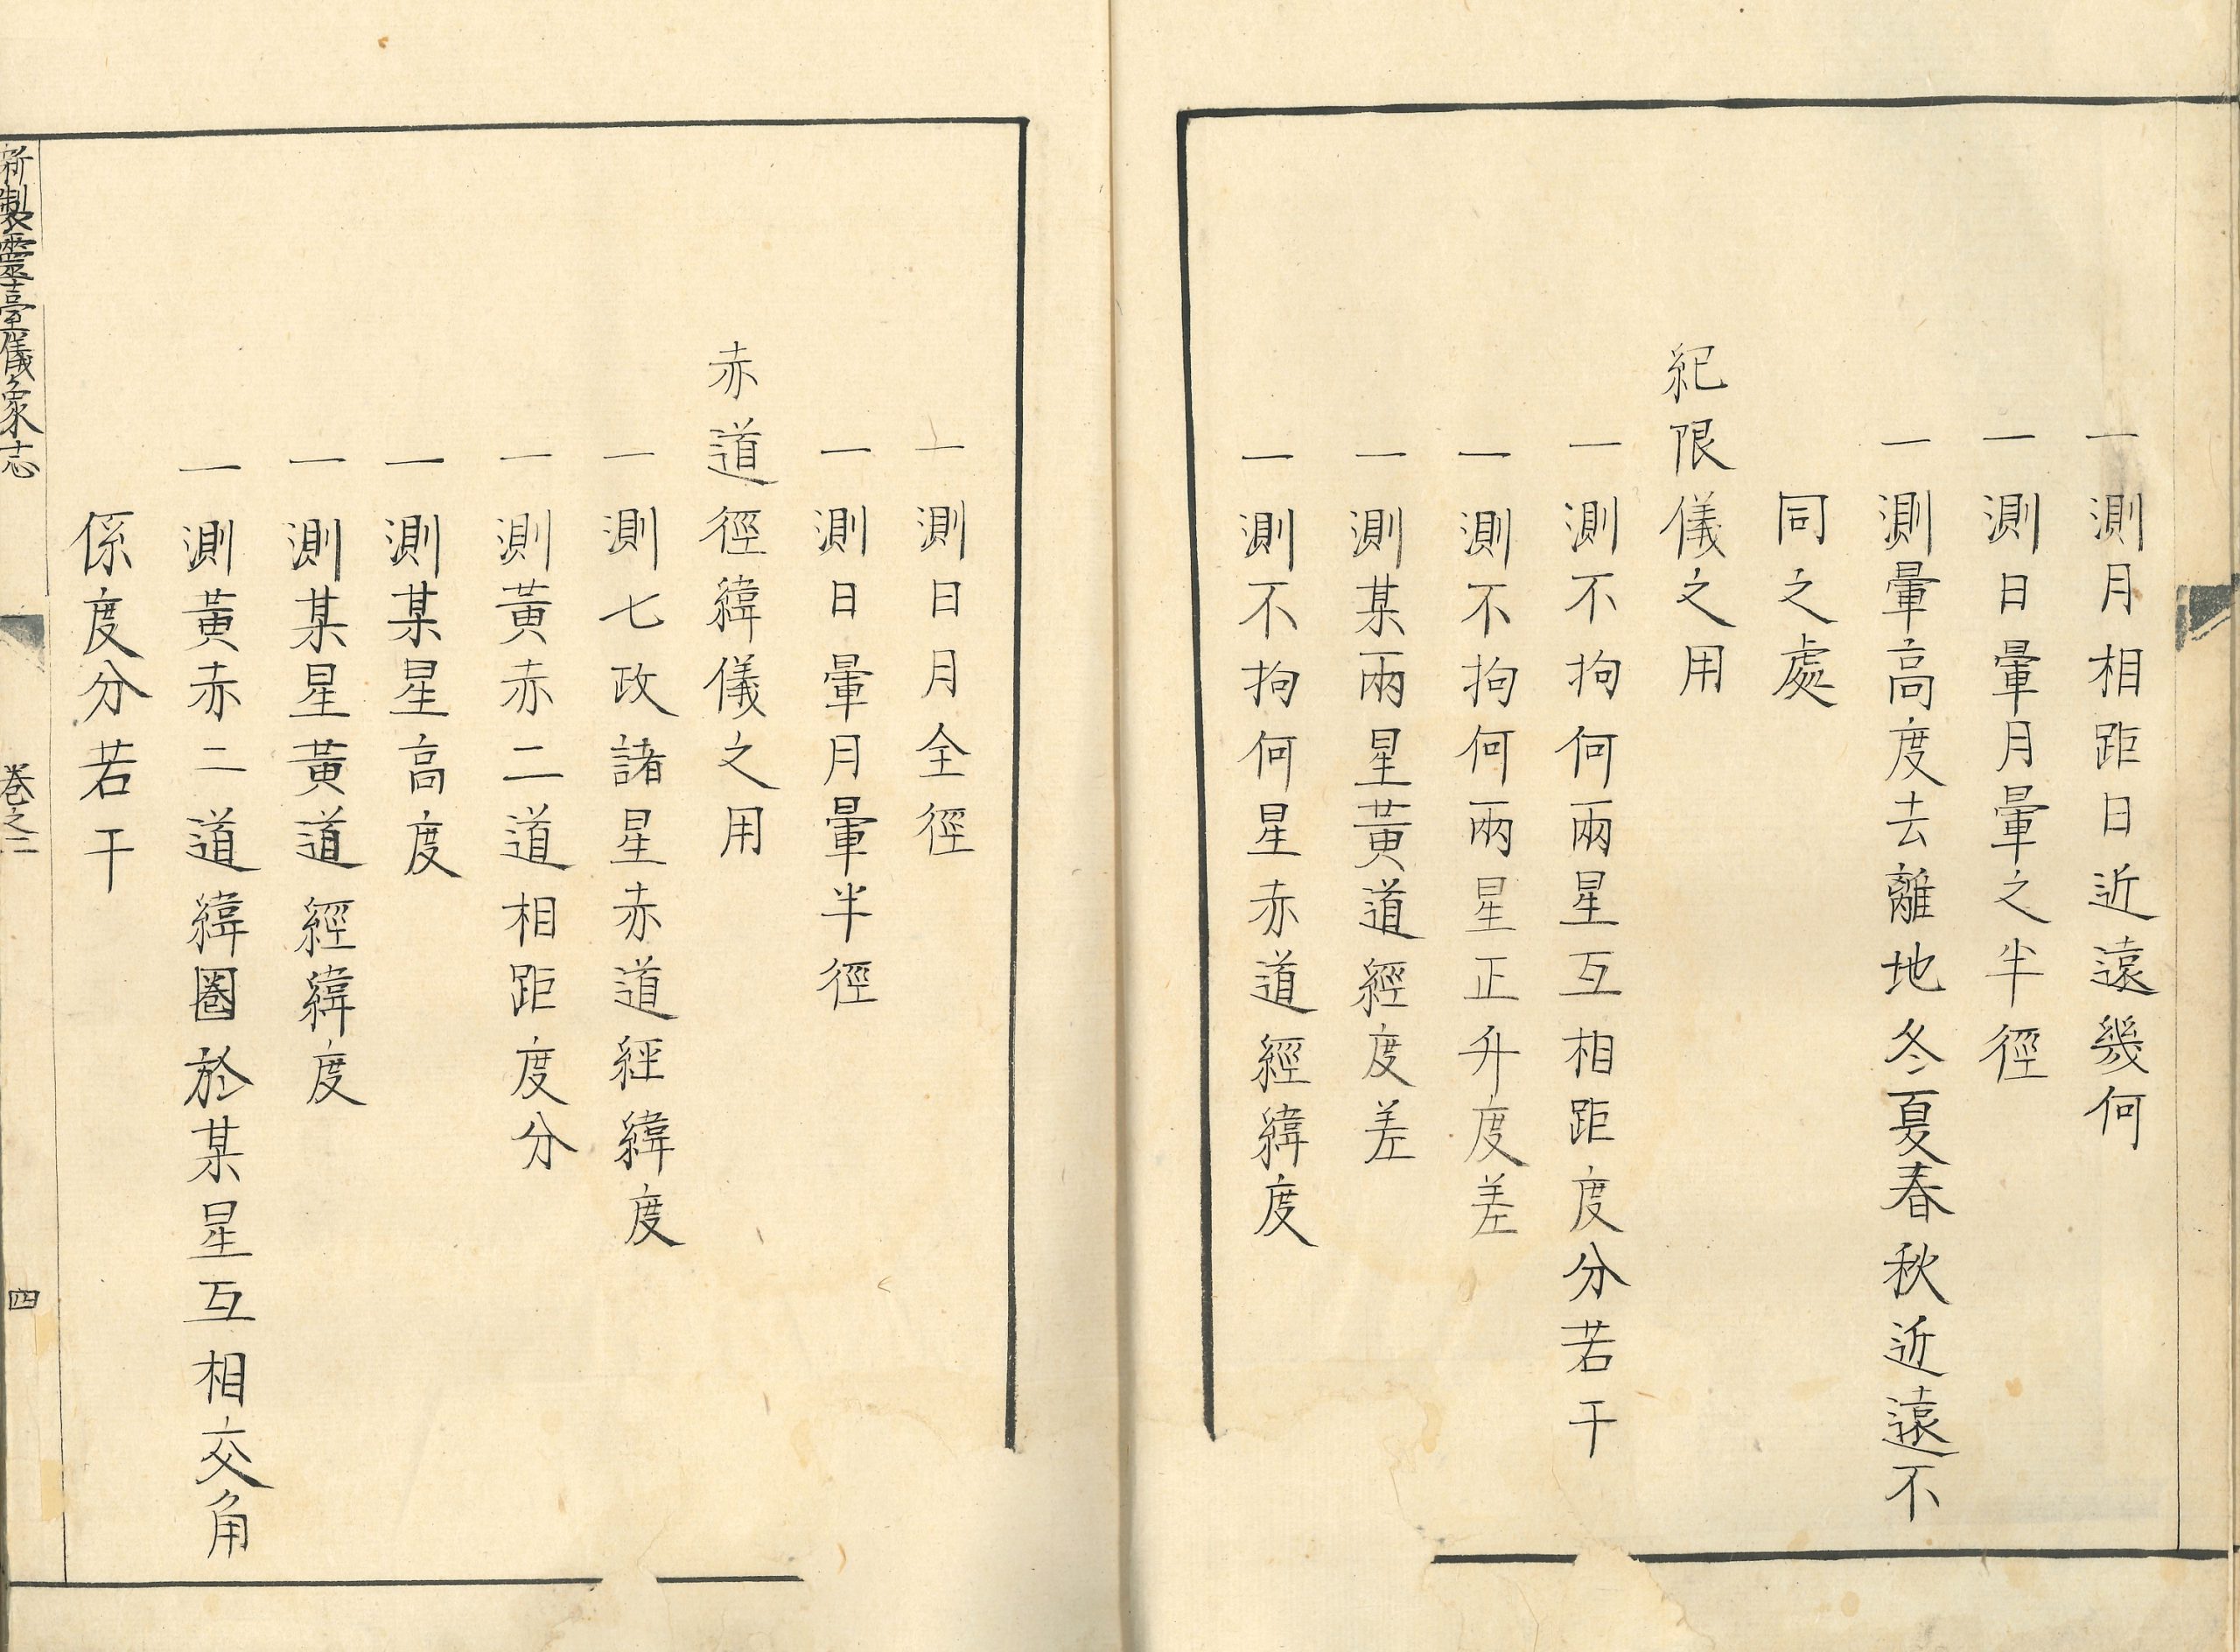 一測月相距日近遠幾何
一測日暈月暈之半徑
一測暈高度去離地冬夏春秋近遠不
同之處
紀限儀之用
一測不拘何兩星互相距度分若干
一測不拘何兩星正升度差
一測某兩星黃道經度差
一測不拘何星赤道經緯度
一測日月全徑
一測日暈月暈半徑
赤道徑緯儀之用
一測七政諸星赤道経緯度
一測黃赤二道相距度分
一測某星高度
一測某星黃道經緯度
一測黃赤二道緯圈於某星互相交角
係度分若干
新製靈臺儀象志
卷之二
四